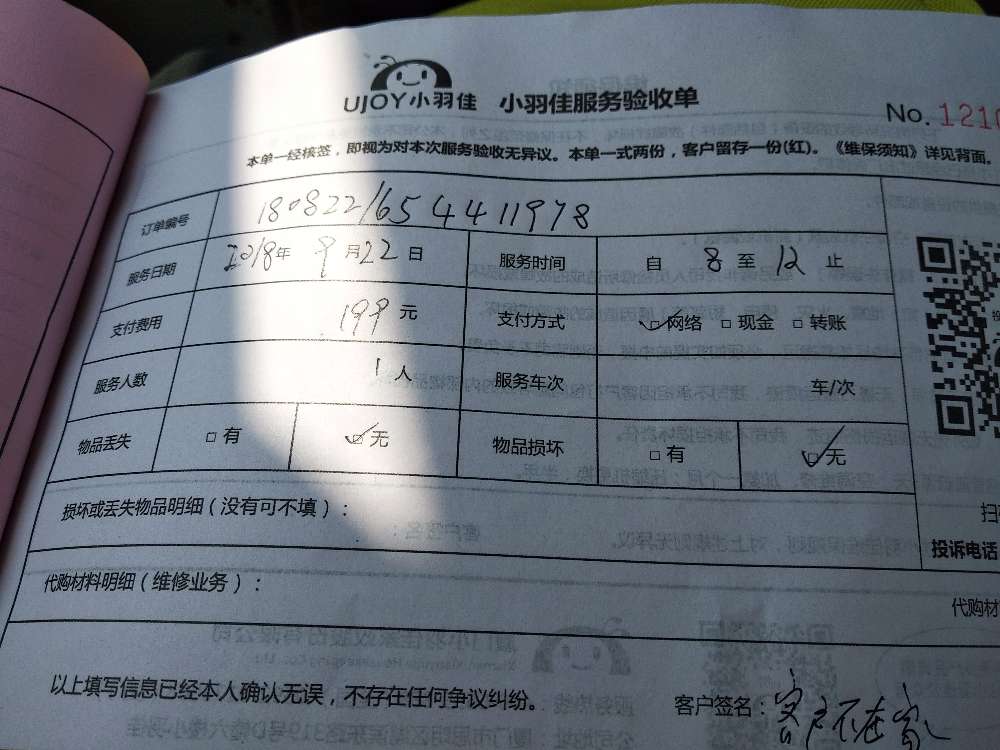 UJOY小羽佳 小羽佳服务验收单
No. 1210
本单一经核签，即视为对本次服务验收无异议。本单一式两份，客户留存一份(红)。《维保须知》详见背面。
订单编号 180822165 4411978
服务日期 2018年 9月22日 服务时间 自 8 至 12 止
支付费用 199元 支付方式 网络 现金 转账
服务人数 1人 服务车次 车/次
物品丢失 有 无 物品损坏 有 无
损坏或丢失物品明细（没有可不填）：
投诉电话
代购材料明细（维修业务）：
代购材
以上填写信息已经本人确认无误，不存在任何争议纠纷。 客户签名：客户不在家